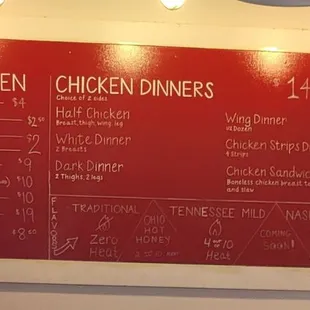 EN
$4
$2.50
2
9
$10
$10
$19
$8.50
CHICKEN DINNERS
Choice of 2 sides
Half Chicken
Breast, thigh, wing, leg
White Dinner
2 Breasts
Dark Dinner
2 Thighs, 2 legs
$14
Wing Dinner
Dozen
Chicken Strips D
4 strips
Chicken Sandwic
Boneless chicken breast
and slaw
FLAVORS
TRADITIONAL
Zero
Heat
OHIO
HOT
HONEY
TENNESSEE MILD
10
Heat
NAS
COMING
SOON!